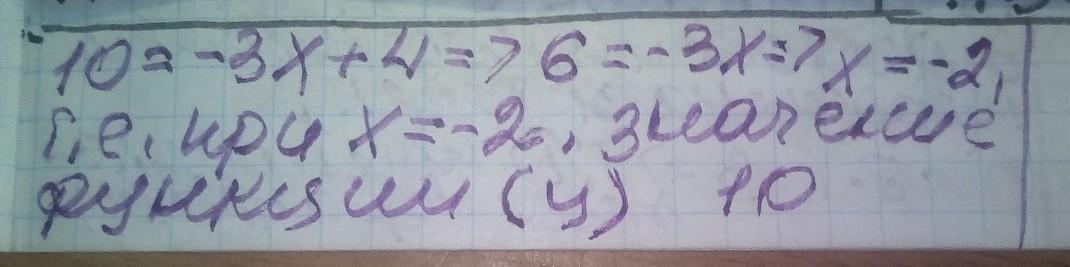 10 = -3x + 4 => 6 = -3x => x = -2,
т.е. при x = -2, значение
функции (y) 10